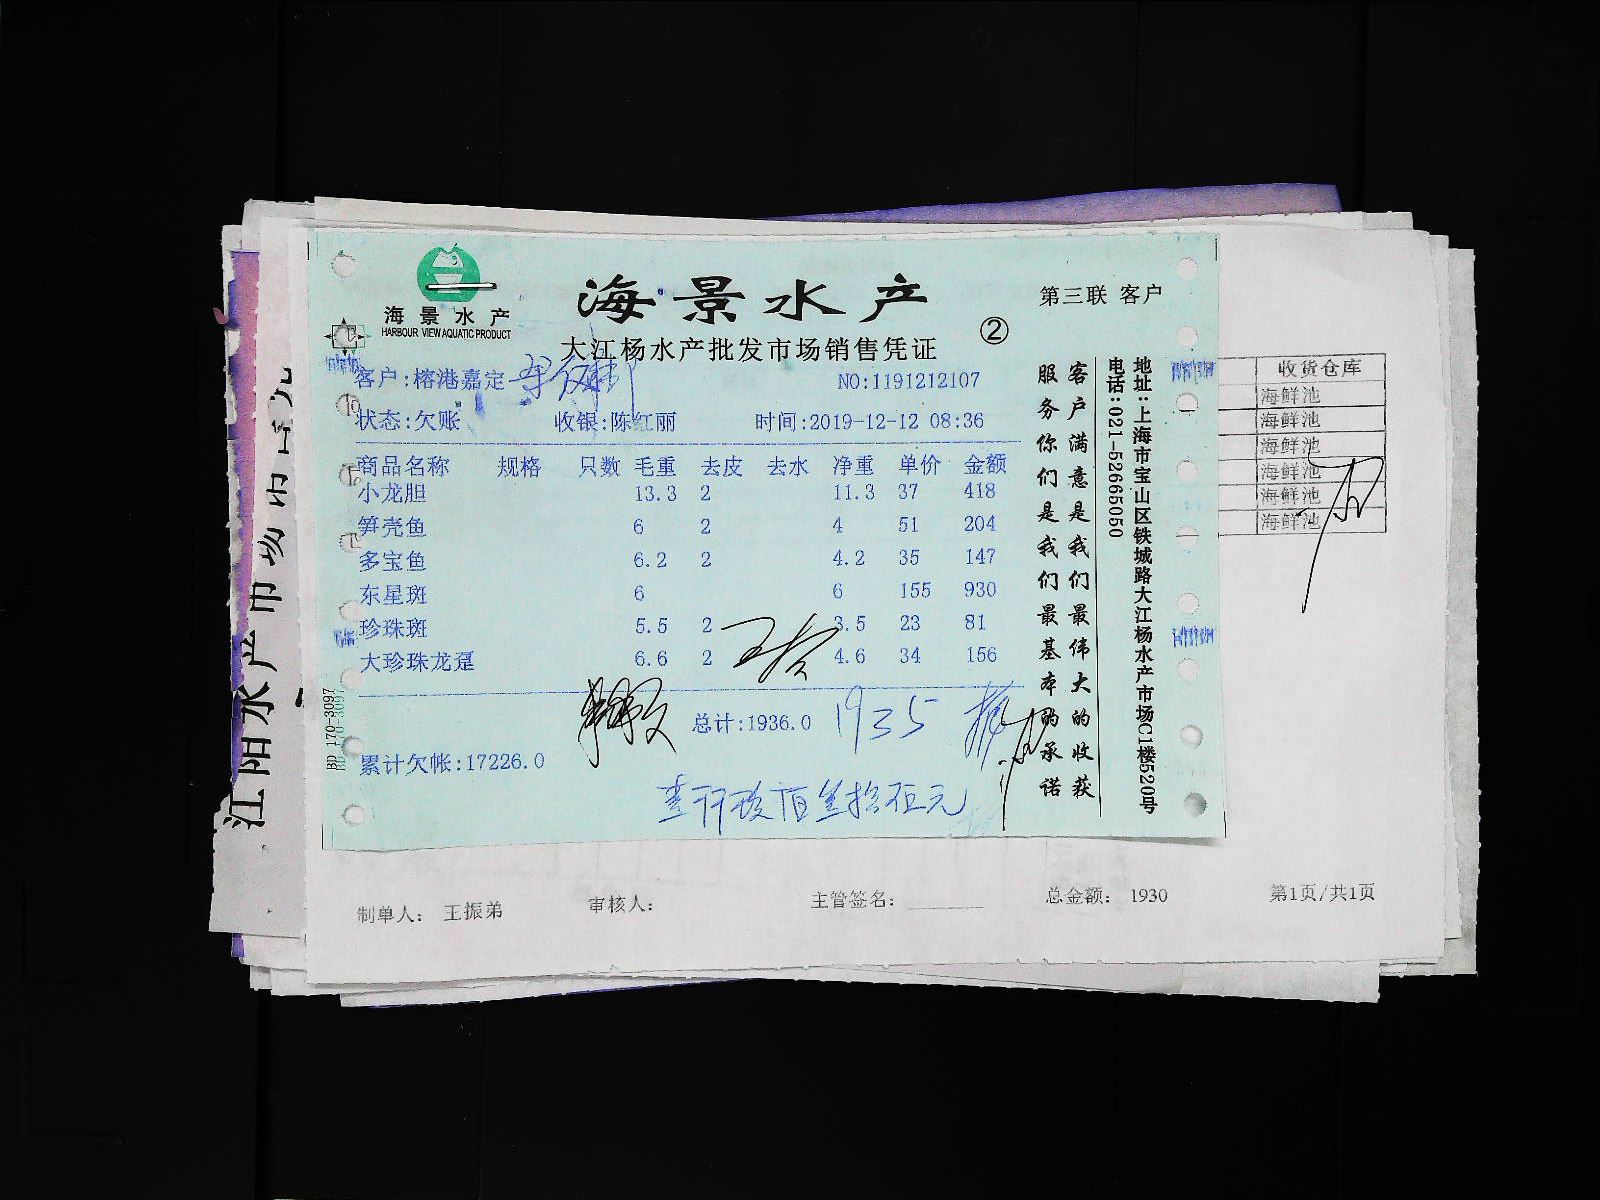 海景水产
HARBOUR VIEW AQUATIC PRODUCT
海景水产
第三联 客户
②
大江杨水产批发市场销售凭证
客户:榕港嘉定
NO:1191212107
状态:欠账 收银:陈红丽 时间:2019-12-12 08:36
商品名称 规格 只数 毛重 去皮 去水 净重 单价 金额
小龙胆 13.3 2 11.3 37 418
笋壳鱼 6 2 4 51 204
多宝鱼 6.2 2 4.2 35 147
东星斑 6 6 155 930
珍珠斑 5.5 2 3.5 23 81
大珍珠龙趸 6.6 2 4.6 34 156
总计:1936.0 1935
累计欠帐:17226.0
壹仟玖佰叁拾伍元
客户满意是我们最伟大的收获
服务你们是我们最基本的承诺
地址:上海市宝山区铁城路大江杨水产市场C1楼520号
电话:021-52665050
BD 170-3097
收货仓库
海鲜池
海鲜池
海鲜池
海鲜池
海鲜池
海鲜池
江阳水产市场
制单人: 王振弟 审核人: 主管签名: 总金额: 1930 第1页/共1页